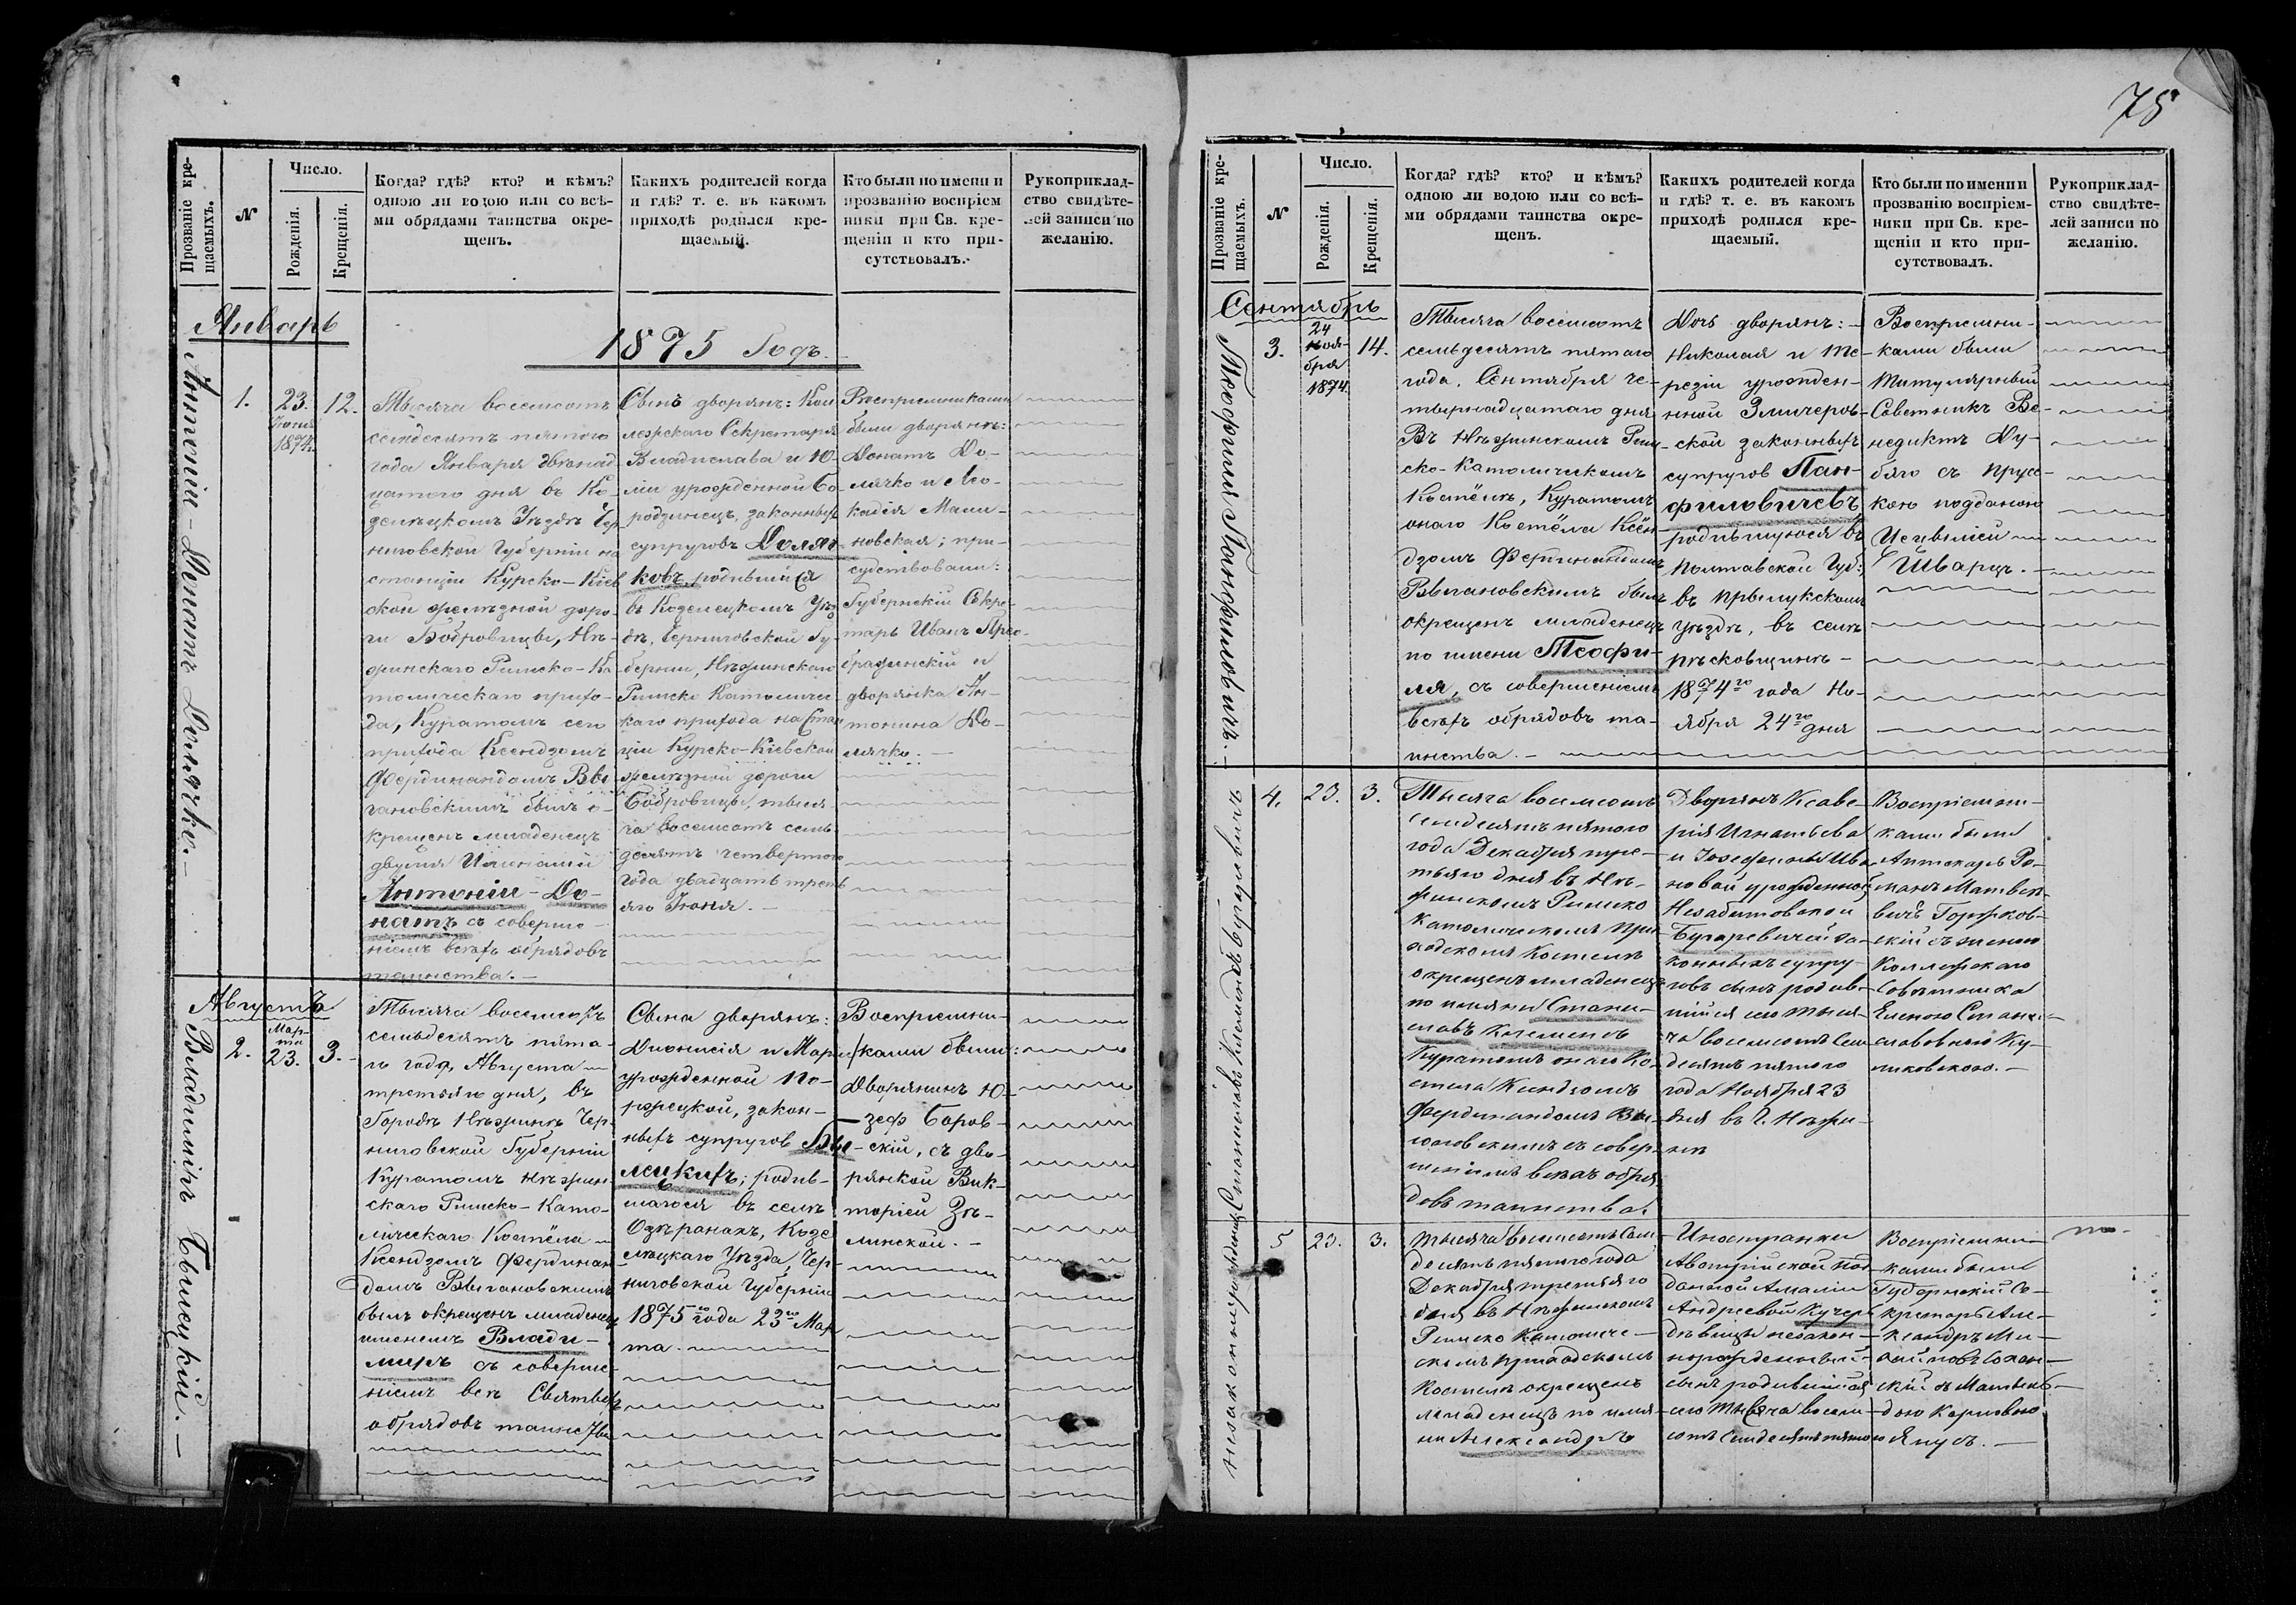 75
Прозваніе кре-
щаемыхъ.
N
Число.
Рожденія.
Крещенія.
Когда? гдѣ? кто? и кѣмъ?
одною ли водою или со всѣ-
ми обрядами таинства окре-
щенъ.
Какихъ родителей когда
и гдѣ? т. е. въ какомъ
приходѣ родился кре-
щаемый.
Кто были по имени и
прозванію воспріем
ники при Св. кре-
щеніи и кто при-
сутствовалъ.
Рукоприклад-
ство свидѣте-
лей записи по
желанію.
Январь
1875 Годъ.
Антоній-Донатъ Долячко.
1.
23.
Іюня
1874.
12.
Тысяча восемсотъ
семдесятъ пятого
года Января двѣнад
цатого дня въ Ко-
зелецкомъ Уѣздѣ Чер
ниговской Губерніи на
станціи Курско-Кіев
ской желѣзной доро-
ги Бобровицы, Нѣ-
жинскаго Римско-Ка
толическаго прихо-
да, Куратомъ сего
прихода Ксендзомъ
Фердинандомъ Вы
гановскимъ былъ о-
крещенъ младенецъ
двумя Именами
Антоній-До-
натъ съ соверше-
ніемъ всѣхъ обрядовъ
таинства.-
Сынъ дворянъ: Кол
лежскаго Секретаря
Владислава и Ю-
ліи урожденной Бо-
родзичъ, законныхъ
супруговъ Доляч-
ковъ, родившійся
въ Козелецкомъ Уѣз
дѣ, Черниговской Гу-
берніи, Нѣжинскаго
Римско Католичес
каго прихода на Стан
ціи Курско-Кіевской
желѣзной дороги
Бобровицы, тыся
ча восемсотъ семь
десятъ четвертого
года двадцать треть
яго Іюня.-
Воспріемниками
были дворянъ:
Донатъ До-
лячко и Лео-
кадія Мали-
новская; при-
судствовали:
Губернскій Секре-
тарь Иванъ Прео-
браженскій и
дворянка Ан-
тонина До-
лячко.-
Августъ
Владиміръ Былецкій.-
2.
Мар-
та
23.
3.
Тысяча восемсотъ
семьдесятъ пята-
го года, Августа
третьяго дня, въ
Городѣ Нѣжинѣ Чер
ниговской Губерніи
Куратомъ Нѣжин
скаго Римско-Като-
лическаго Костёла
Ксендзомъ Фердинан
домъ Выгановскимъ
былъ окрещенъ младенецъ
именемъ Влади-
миръ съ соверше-
ніемъ всѣ Святыхъ
обрядовъ таинства
Сына дворянъ:
Діонисія и Маріи
урожденной По-
рѣцкой, закон-
ныхъ супругов Бы-
лецкихъ; родив-
шагося въ селѣ
Озѣранахъ, Козе
лецкаго Уѣзда, Чер-
ниговской Губерніи
1875го года 23го Мар
та.
Воспріемни-
ками были:
Дворянинъ Ю-
зеф Боров-
скій, съ дво-
рянкой Вик-
торіей Зѣ-
линской.-
Прозваніе кре-
щаемыхъ.
N
Число.
Рожденія.
Крещенія.
Когда? гдѣ? кто? и кѣмъ?
одною ли водою или со всѣ-
ми обрядами таинства окре-
щенъ.
Какихъ родителей когда
и гдѣ? т. е. въ какомъ
приходѣ родился кре-
щаемый.
Кто были по имени и
прозванію воспріем-
ники при Св. кре-
щеніи и кто при-
сутствовалъ.
Рукоприклад-
ство свидѣте-
лей записи по
желанію.
Сентябрь
Теофилія Панфиловичъ.
3.
24
Ноя-
бря
1874.
14.
Тысяча восемсотъ
семьдесятъ пятаго
года. Сентября че-
тырнадцатаго дня
Въ Нѣжинскомъ Рим
ско-Католическомъ
Костёлѣ, Куратомъ
онаго Костёла Ксён
дзомъ Фердинандомъ
Выгановскимъ былъ
окрещенъ младенецъ
по имени Теофи-
лія, съ совершеніемъ
всѣхъ обрядовъ та-
инства.-
Дочь дворянъ:-
Николая и Те-
резіи урожден-
нной Эмичеров-
ской законныхъ
супругов Пан-
филовичевъ
родившуюся въ
Полтавской Губ:
въ Прылукскомъ
Уѣздѣ, въ селѣ
Пѣсковщинѣ-
1874го года Но-
ября 24го дня
Воспріемни-
ками были
Титулярный
Совѣтникъ Ве-
недиктъ Ду-
бяго съ прусс-
кою подданною
Шварцъ.-
Станиславъ Климентъ Бугаревичъ
4.
23.
3.
Тысяча восемсотъ
семдесятъ пятого
года Декабря тре-
тьяго дня въ Нѣ-
жинскомъ Римско
Католическомъ При
ходскомъ Костелѣ
окрещенъ младенецъ
по имяни Стани-
славъ Климентъ
Куратомъ онаго Ко-
стела Ксендзомъ
Фердинандомъ Вы-
гановскимъ съ совер-
шеніемъ всѣхъ обря
довъ таинства.
Дворянъ Ксаве-
рія Игнатьева
и Іозефины Ива-
новой урожденной
Незабитовской
Бугаревичей за-
конныхъ супру-
говъ сынъ родив-
шійся сего тыся
ча восемсотъ сем
десятъ пятого
года Ноября 23
дня въ г. Нѣжи-
нѣ
Воспріемни-
ками были
Аптекарь Ро-
манъ Матвѣе-
вичъ Горжков-
скій съ женою
Коллежскаго
Совѣтника
Еленою Стани-
славовною Ку-
ликовскою.-
Незаконнорожденный
5
23.
3.
Тысяча восемсотъ сем
десятъ пятого года
Декабря третьяго
дня въ Нѣжинскомъ
Римско Католиче-
скомъ Приходскомъ
Костелѣ окрещенъ
младенецъ по имя-
ни Александръ
Иностранки
Австрійской под
данной Амаліи
Андреевой Кучеръ
дѣвицы незакон-
норожденный
сынъ родившійся
сего тысяча восем
сотъ семдесятъ пятого
Воспріемни-
ками были
Губернскій Се-
кретарь Але-
ксандръ Ми-
съ Матиль-
дою Карловою
Янусъ.-